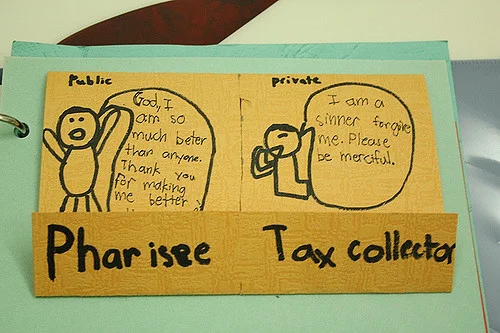 Public
God, I
am so
much beter
than anyone.
Thank you
for making
me better
private
I am a
sinner forgive
me. Please
be merciful.
Pharisee
Tax collector